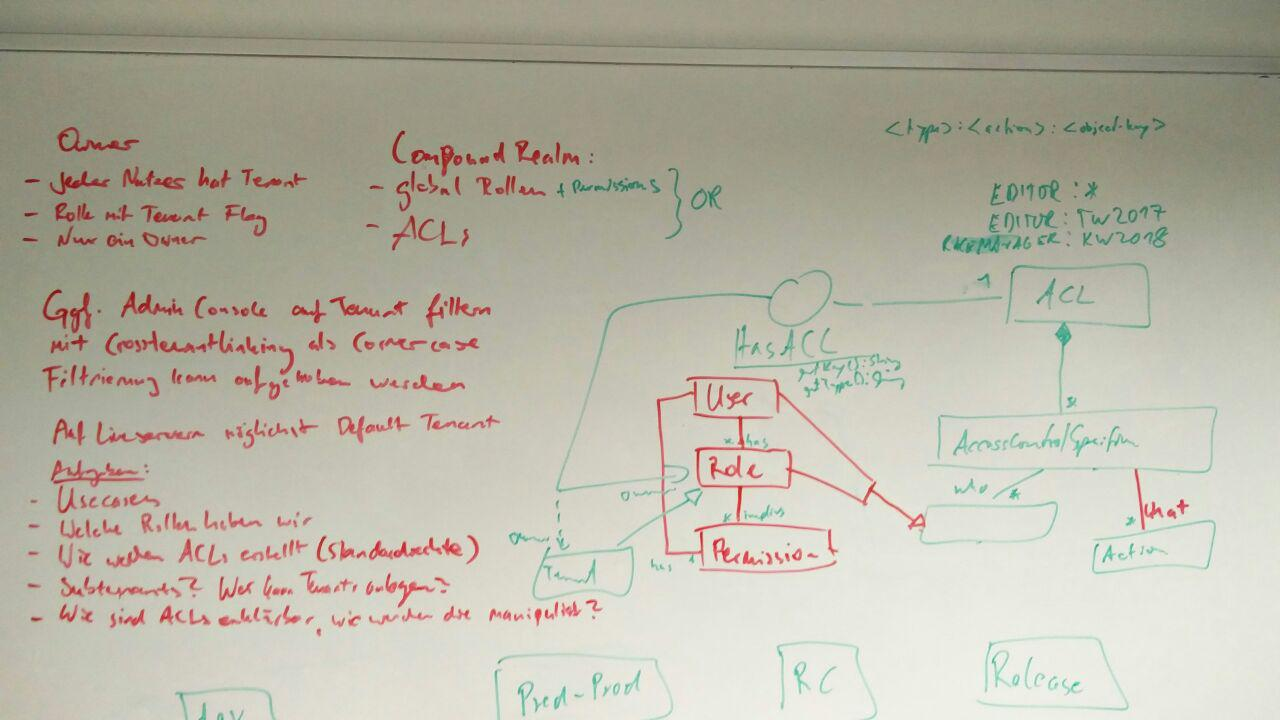 Owner
- Jeder Nutzer hat Tenant
- Rolle mit Tenant Flag
- Nur ein Owner
Compound Realm:
- global Rollen + Permissions
- ACLs
} OR
<type>:<action>:<object-key>
EDITOR: *
EDITOR: TW2017
: KW2018
Ggf. Admin Console auf Tenant filtern
mit Crosstenantlinking als Cornercase
Filtrierung kann aufgehoben werden
Auf Liveservern möglichst Default Tenant
Aufgaben:
- Usecases
- Welche Rollen haben wir
- Wie werden ACLs erstellt (Standardrechte)
- Subtenants? Wer kann Tenants anlegen?
- Wie sind ACLs erklärbar, wie werden die manipuliert?
HasACL
getKey():String
getType():String
1
ACL
*
AccessControlSpecifim
who
*
what
*
Action
User
* has
Role
* implies
Permission
has
*
owner
Tenant
dev
Pred-Prod
RC
Release